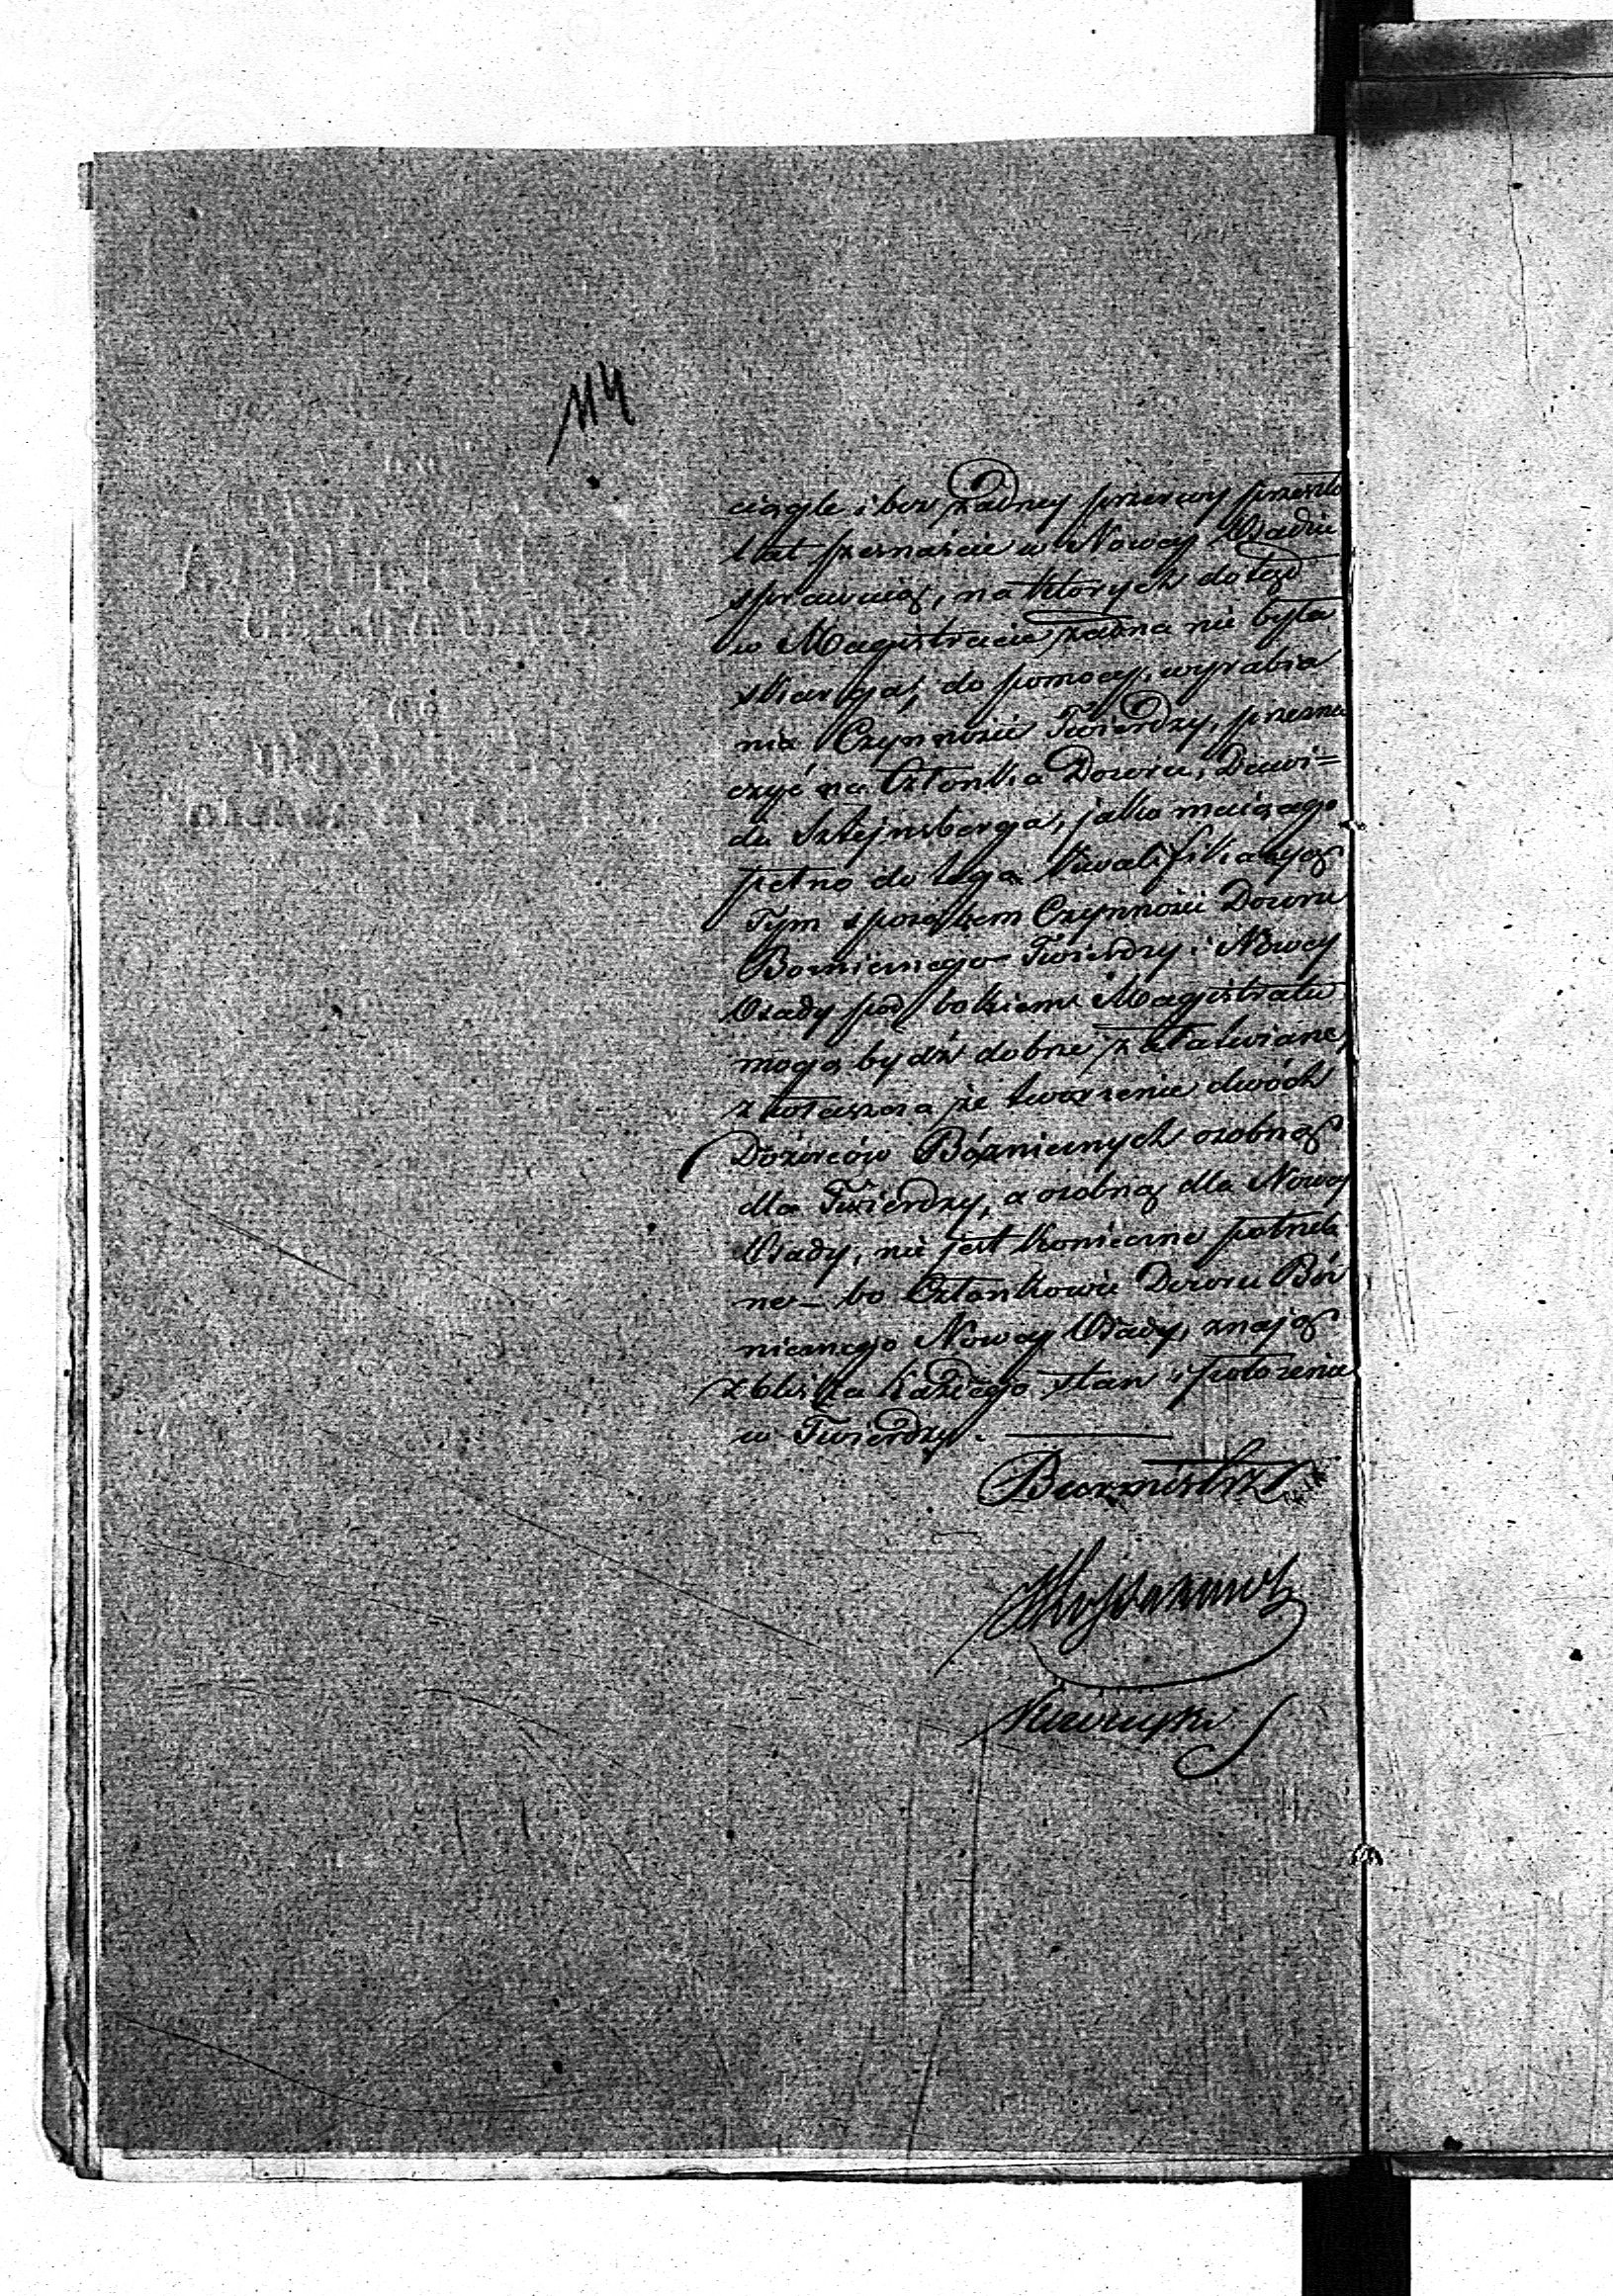 114
ciągle i bez żadney przerwy przeszło
lat szesnaście w Nowey Osadzie
sprawują, na których dotąd
w Magistracie żadna nie była
skarga; do pomocy wyrabia
nia Czynności Twierdzy, przezna
czyć na Członka Dozoru, Dawi=
da Sztejnsberga, jako maiącego
pełno do tego Kwalifikacyą
Tym sposobem Czynności Dozoru
Bożnicznego Twierdzy i Nowey
Osady pod bokiem Magistratu
mogą bydź dobrze załatwiane,
zwłaszcza że tworzenie dwóch
Dozorców Bóżnicznych osobno
dla Twierdzy, a osobno dla Nowey
Osady, nie jest koniecznie potrzeb
ne – bo Członkowie Dozoru Bóż
nicznego Nowey Osady, znają
zbliska każdego stan i położenie
w Twierdzy. —
Burmistrz